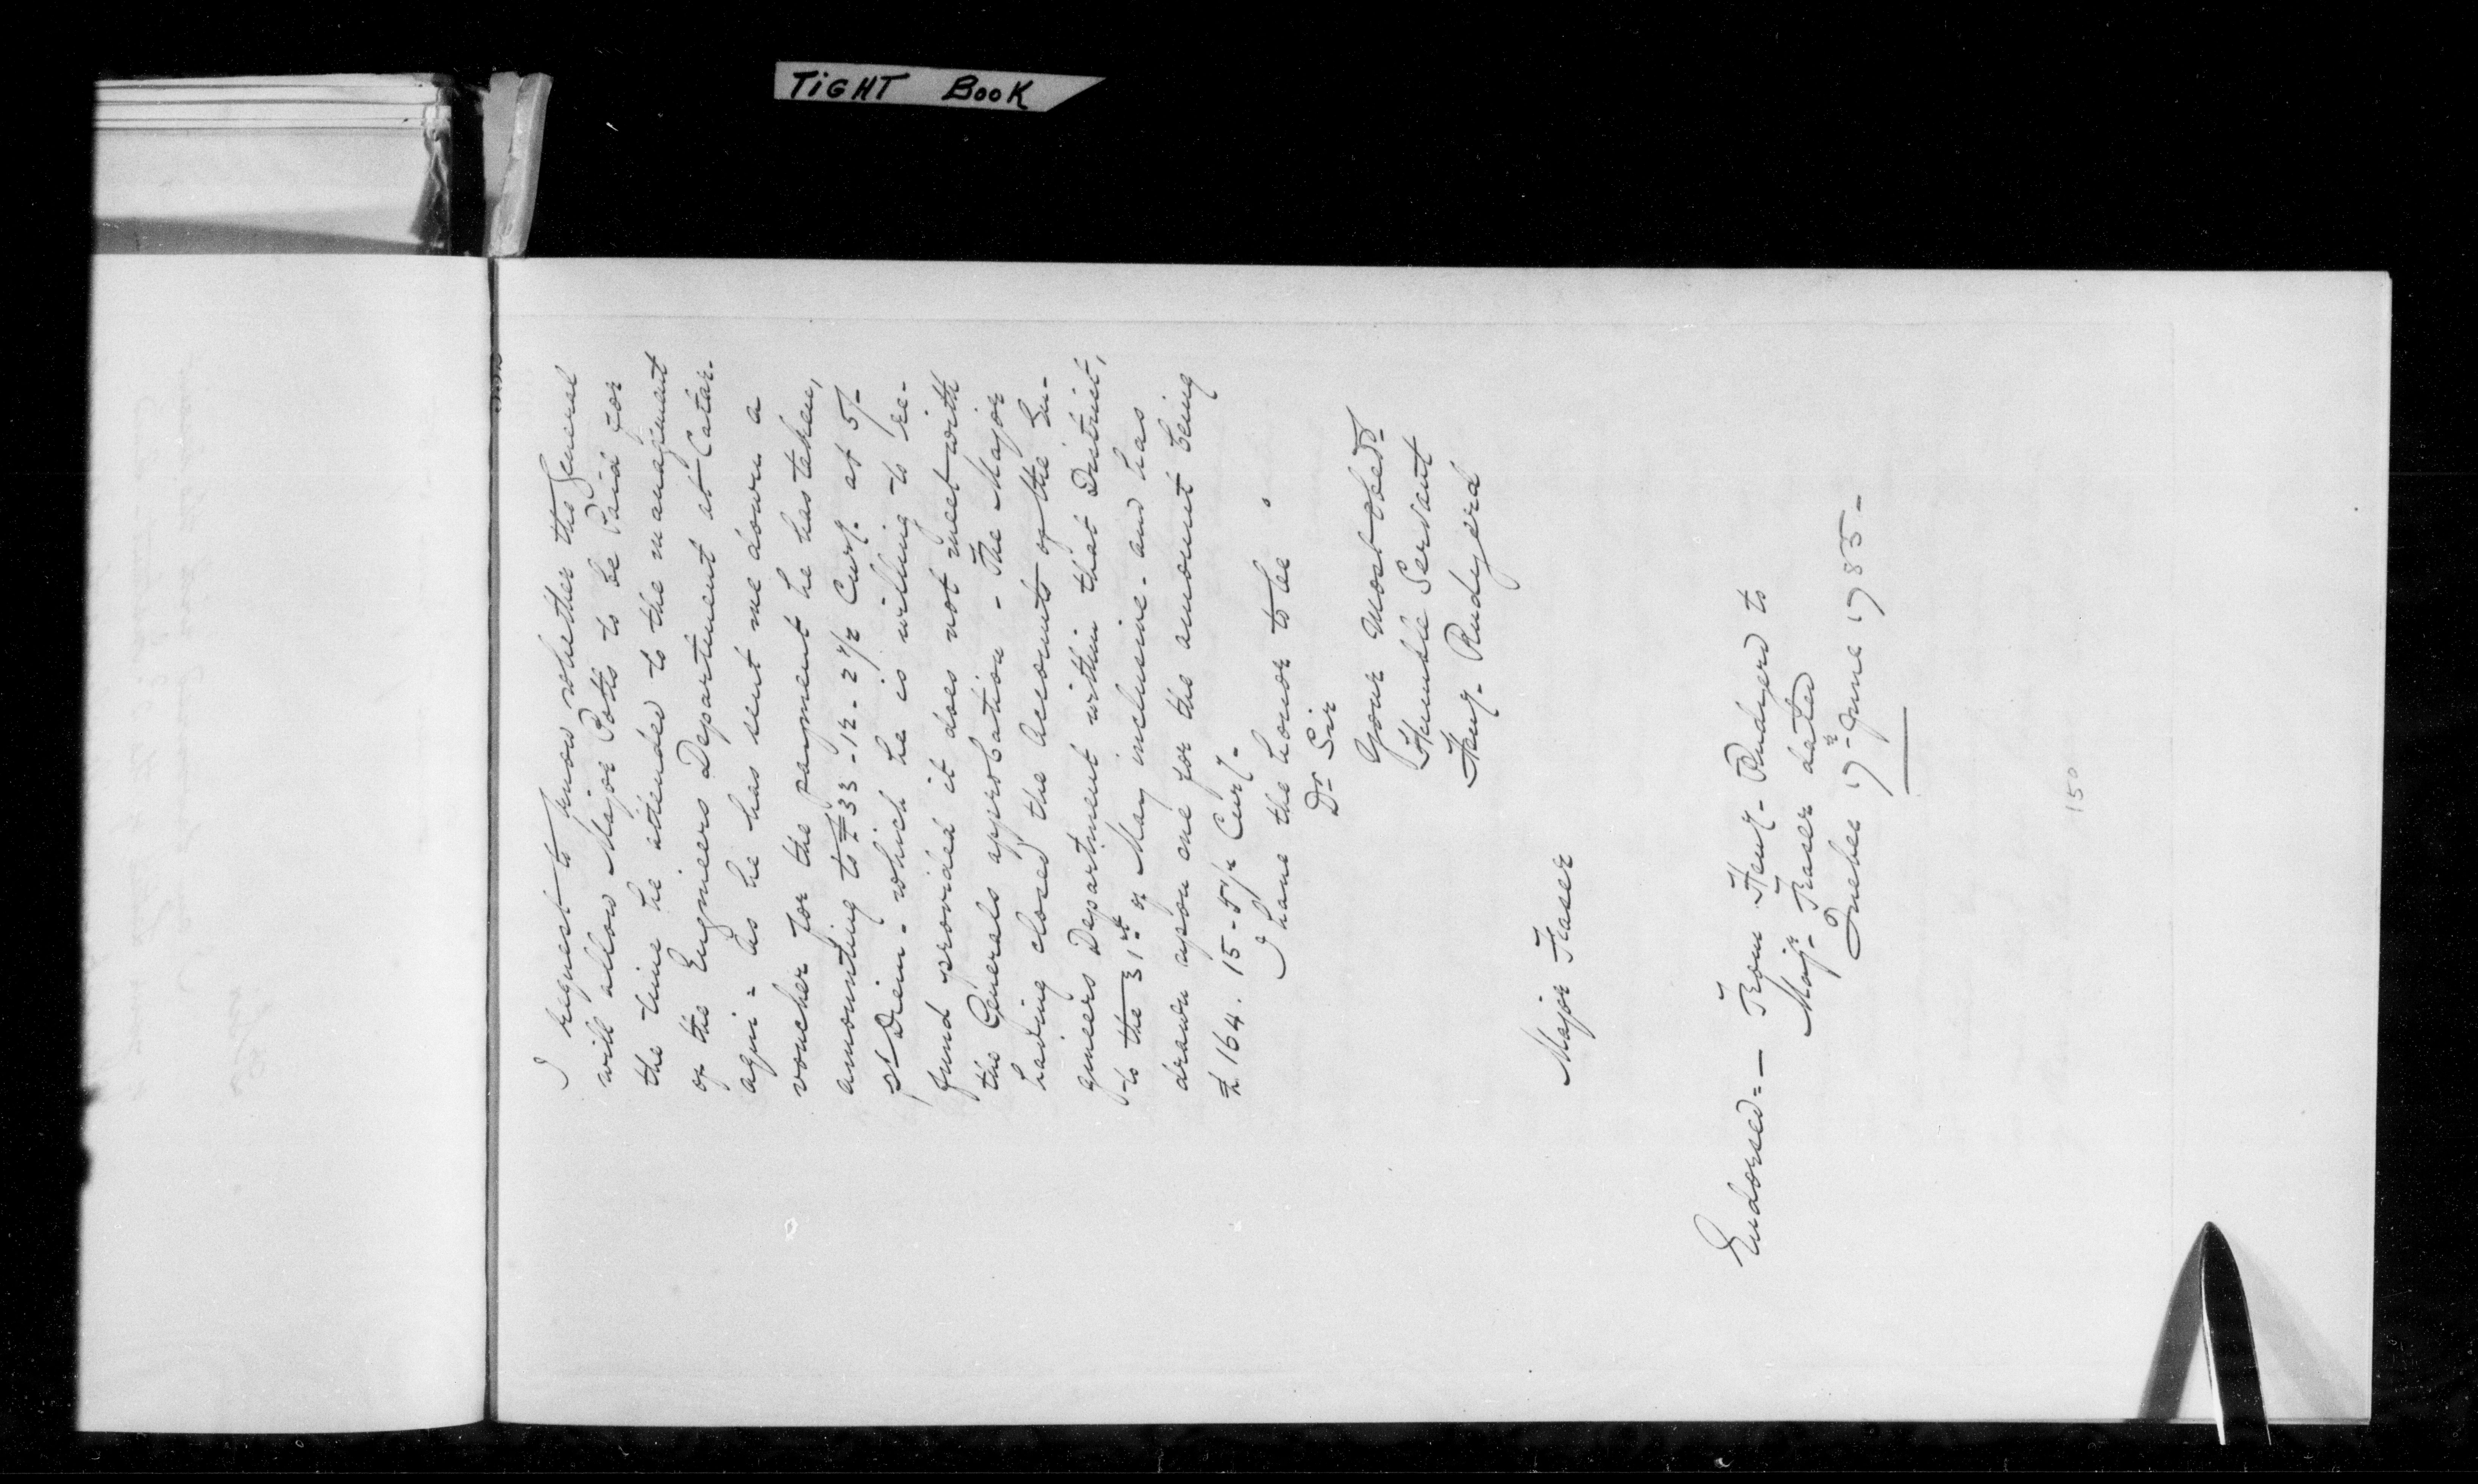 TIGHT BOOK
I request to know whether the General
will allow Major Potts to be Paid for
the time he attended to the management
of the Engineers Department at Catar-
aqui = as he has sent me down a
voucher for the payment he has taken,
amounting to £33-12-2 1/2 Curr. at 5/-
pr Diem - which he is willing to re-
fund provided it does not meet with
the Generals approbation - The Major
having closed the Accounts of the En-
gineers Department within that District,
to the 31st of May inclusive - and has
drawn upon me for the amount being
£164. 15 - 5 1/2 Curr.
I have the honor to be
Dr Sir
Your Most Obedt-
Humble Servant
Henr. Rudyerd
Major Fraser
Endorsed = - From Henr. Rudyerd to
Majr. Fraser dated
Quebec 17th June 1785 -
150